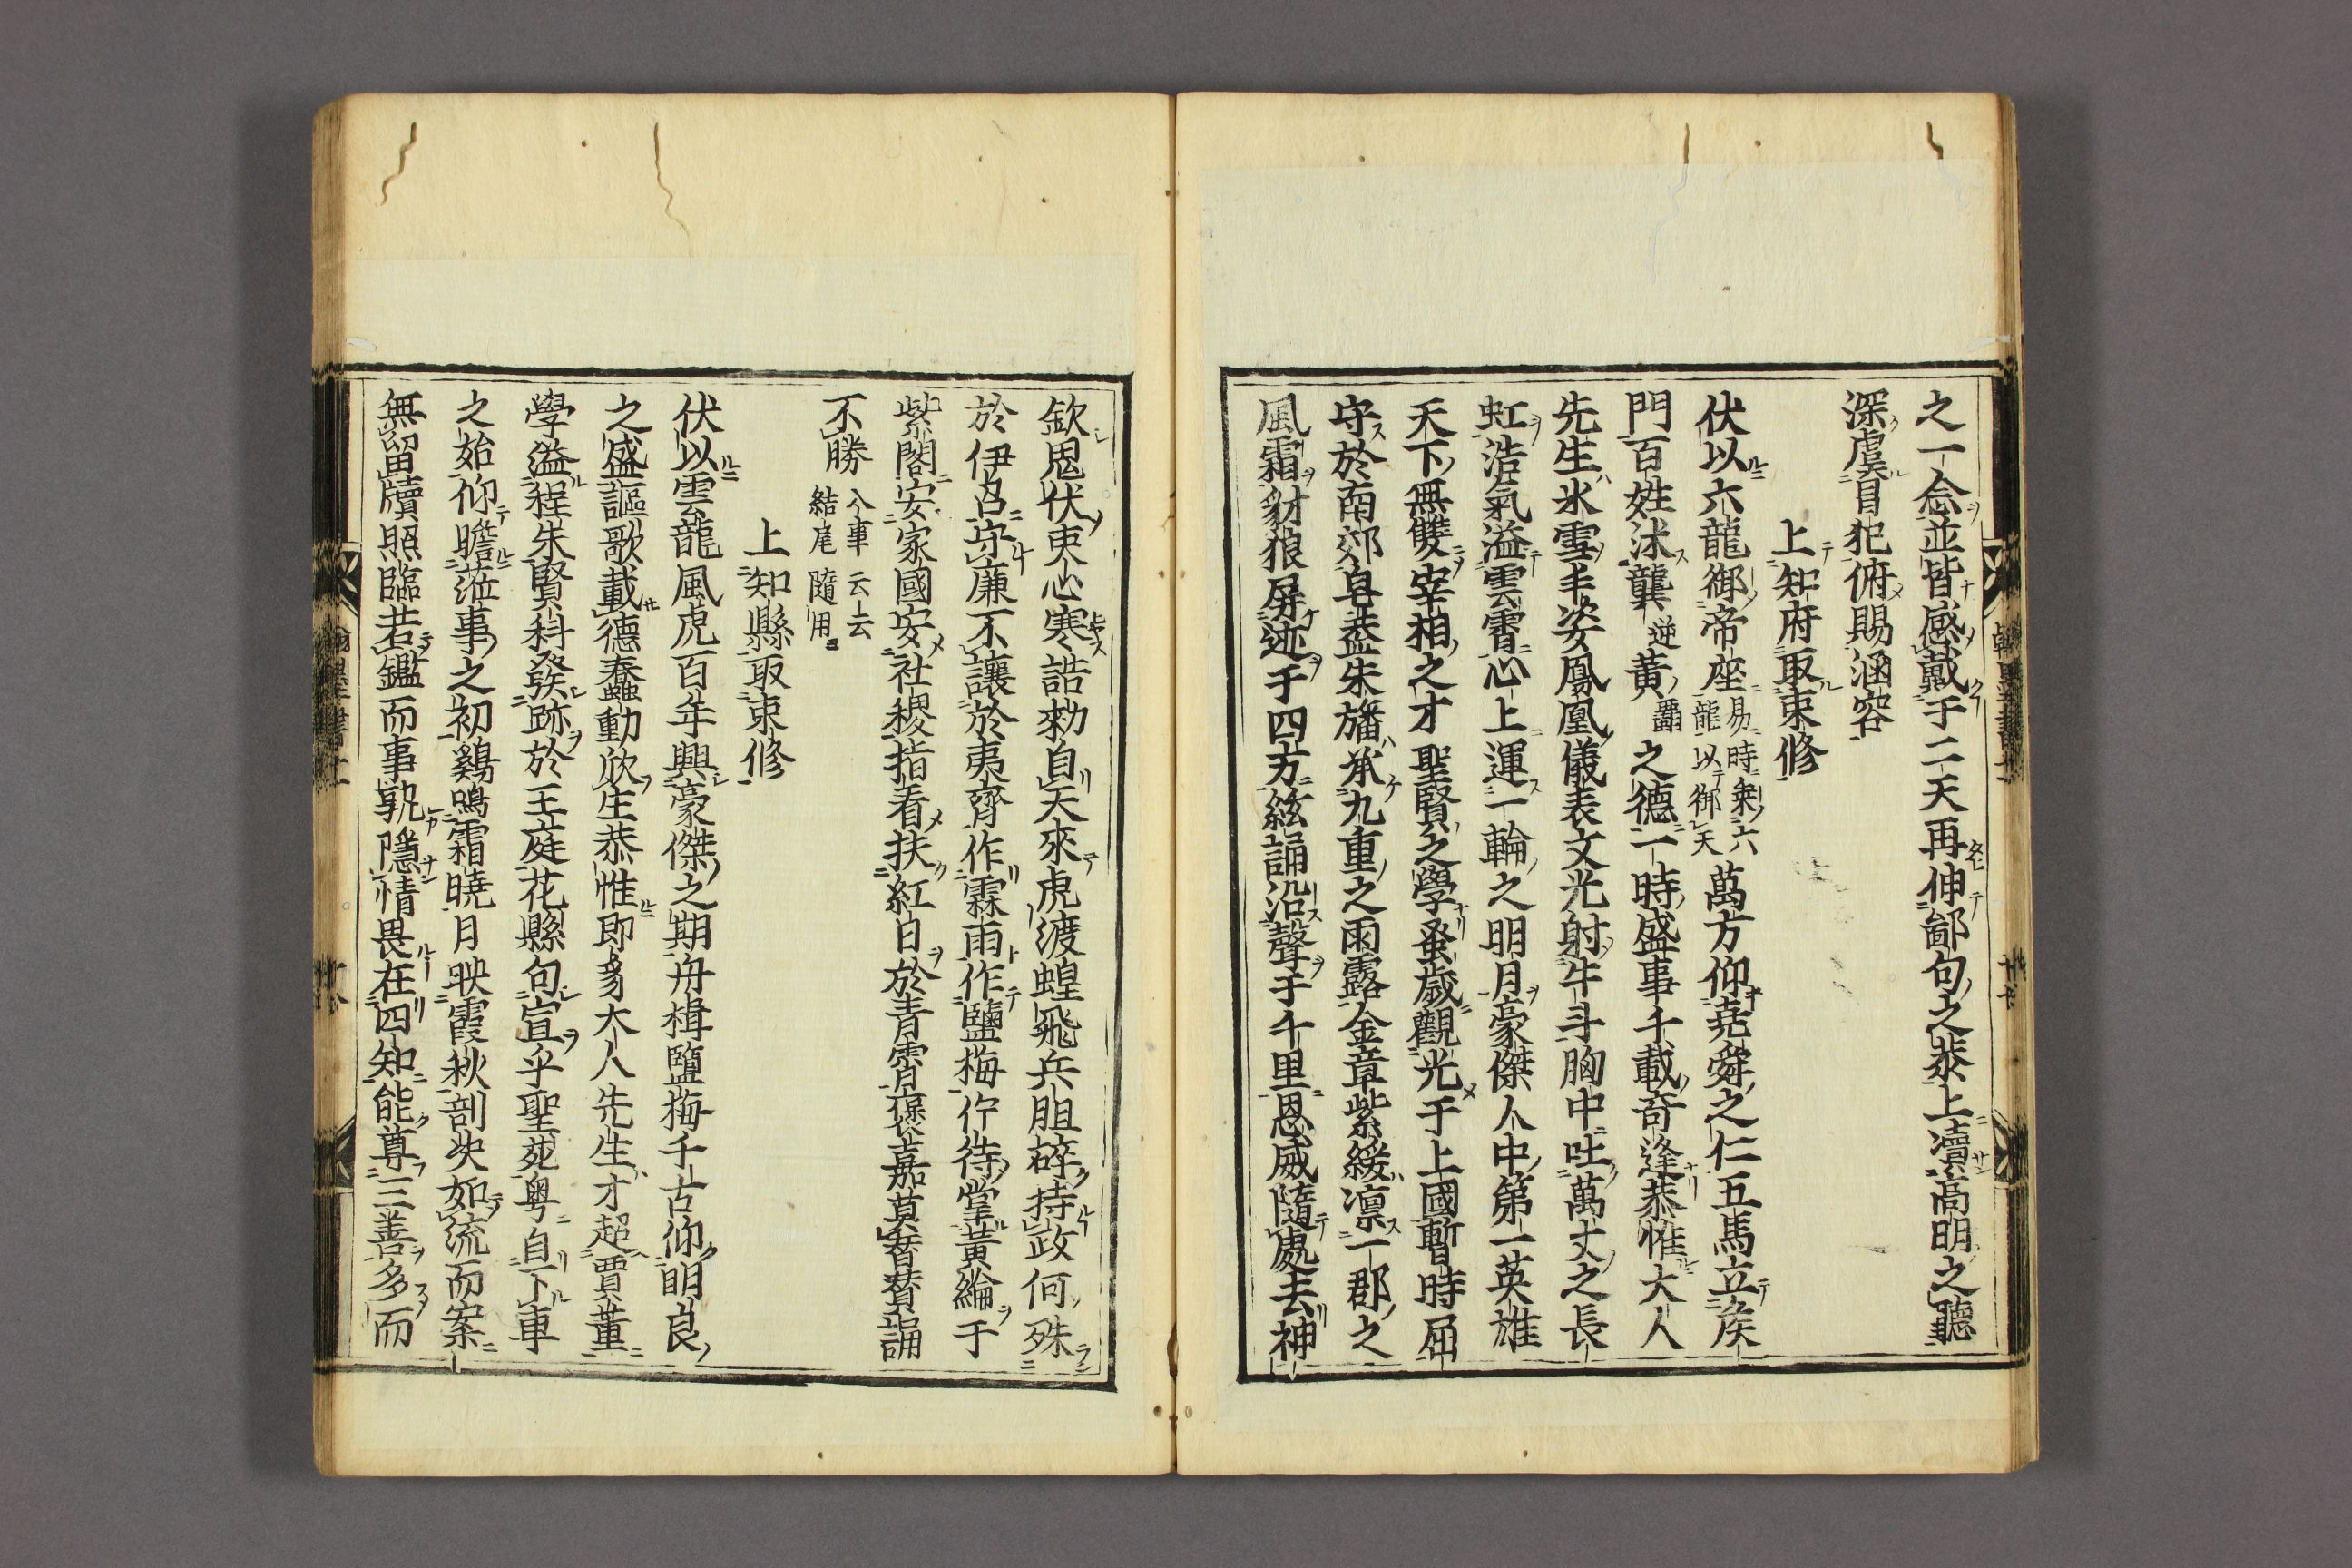 之一念並皆感戴于二天再伸鄙句之恭上瀆高明之聽
深虞冒犯俯賜涵容
上知府取束修
伏以六龍御帝座易時乘六龍以御天萬方仰堯舜之仁五馬立侯
門百姓沐龔逆黃霸之德一時盛事千載奇逢恭惟大人
先生氷雪丰姿鳳凰儀表文光射牛斗胸中吐萬丈之長
虹浩氣溢雲霄心上運一輪之明月豪傑人中第一英雄
天下無雙宰相之才聖賢之學蚤歲觀光于上國暫時屈
守於南郊皂蓋朱旛承九重之雨露金章紫綬凛一郡之
風霜豺狼屏迹于四方絃誦沿聲于千里恩威隨處去神
欽鬼伏吏心寒誥勑自天來虎渡蝗飛兵胆碎持政何殊
於伊呂守廉不讓於夷齊作霖雨作鹽梅佇待掌黃綸于
紫閣安家國安社稷指看扶紅日於青霄褒嘉莫罄賛誦
不勝入車云云結尾隨用
上知縣取束修
伏以雲龍風虎百年興豪傑之期舟楫鹽梅千古仰明良
之盛謳歌載德蠢動欣生恭惟即豸大人先生才超賈董
學溢程朱賢科發跡於王庭花縣句宣乎聖苑粤自下車
之始仰瞻蒞事之初鷄鳴霜曉月映霞秋剖决如流而案
無留牘照臨若鑑而事孰隱情畏在四知能尊三善多而